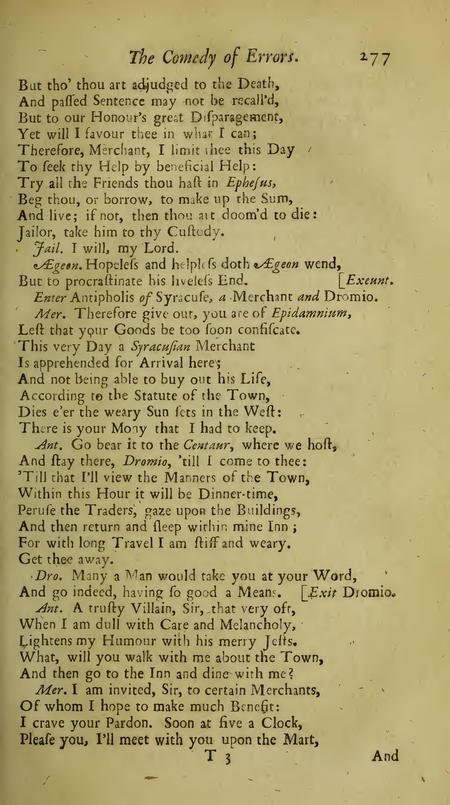 The Comedy of Errors. 277
But tho' thou art adjudged to the Death,
And paſſed Sentence may not be recall'd,
But to our Honour's great Diſparagement,
Yet will I favour thee in what I can;
Therefore, Merchant, I limit thee this Day
To ſeek thy Help by beneficial Help:
Try all the Friends thou haſt in Epheſus,
Beg thou, or borrow, to make up the Sum,
And live; if not, then thou art doom'd to die:
Jailor, take him to thy Cuſtody.
Jail. I will, my Lord.
Ægeon. Hopeleſs and helpleſs doth Ægeon wend,
But to procraſtinate his liveleſs End. [Exeunt.
Enter Antipholis of Syracuſe, a Merchant and Dromio.
Mer. Therefore give out, you are of Epidamnium,
Leſt that your Goods be too ſoon confiſcate.
This very Day a Syracuſian Merchant
Is apprehended for Arrival here;
And not being able to buy out his Life,
According to the Statute of the Town,
Dies e'er the weary Sun ſets in the Weſt:
There is your Mony that I had to keep.
Ant. Go bear it to the Centaur, where we hoſt,
And ſtay there, Dromio, 'till I come to thee:
'Till that I'll view the Manners of the Town,
Within this Hour it will be Dinner-time,
Peruſe the Traders, gaze upon the Buildings,
And then return and ſleep within mine Inn;
For with long Travel I am ſtiff and weary.
Get thee away.
Dro. Many a Man would take you at your Word,
And go indeed, having ſo good a Means. [Exit Dromio.
Ant. A truſty Villain, Sir, that very oft,
When I am dull with Care and Melancholy,
Lightens my Humour with his merry Jeſts.
What, will you walk with me about the Town,
And then go to the Inn and dine with me?
Mer. I am invited, Sir, to certain Merchants,
Of whom I hope to make much Benefit:
I crave your Pardon. Soon at five a Clock,
Pleaſe you, I'll meet with you upon the Mart,
T 3 And